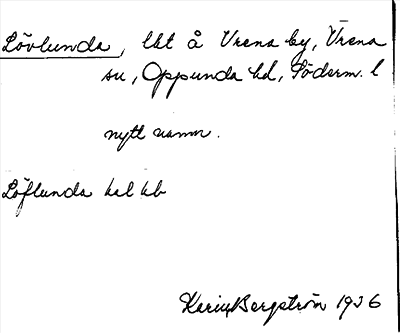 Lövlunda, lht å Vrena by, Vrena
sn, Oppunda hd, Söderm. l
nytt namn.
Löflunda hal kb
Karin Bergström 1936